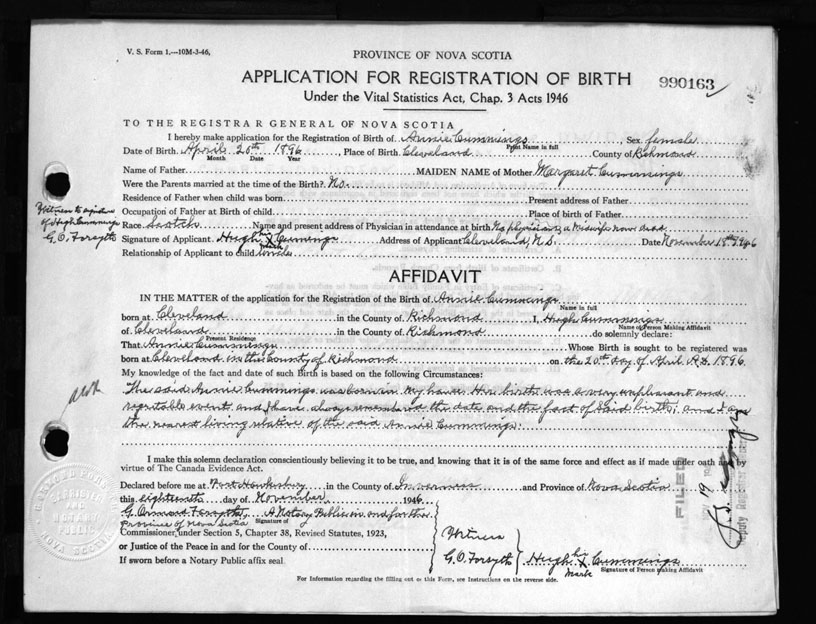 V. S. Form 1.—10M-3-46.
PROVINCE OF NOVA SCOTIA
APPLICATION FOR REGISTRATION OF BIRTH
990163
Under the Vital Statistics Act, Chap. 3 Acts 1946
TO THE REGISTRAR GENERAL OF NOVA SCOTIA
I hereby make application for the Registration of Birth of Annie Cummings Sex female
Print Name in full
Date of Birth April 20th 1896, Place of Birth Cleveland County of Richmond
Month Date Year
Name of Father MAIDEN NAME of Mother Margaret Cummings
Were the Parents married at the time of the Birth? No.
Residence of Father when child was born Present address of Father
Occupation of Father at Birth of child Place of birth of Father
Witness to signature of Hugh Cummings G. O. Forsyth
Race Scotch Name and present address of Physician in attendance at birth No physician, a Midwife now dead
Signature of Applicant Hugh his X mark Cummings Address of Applicant Cleveland, N.S. Date November 18th 1946
Relationship of Applicant to child Uncle
AFFIDAVIT
IN THE MATTER of the application for the Registration of the Birth of Annie Cummings
Name in full
born at Cleveland in the County of Richmond I, Hugh Cummings
Name of Person Making Affidavit
of Cleveland in the County of Richmond do solemnly declare:
Present Residence
That Annie Cummings Whose Birth is sought to be registered was
born at Cleveland in the County of Richmond on the 20th day of April A.D. 1896
My knowledge of the fact and date of such Birth is based on the following Circumstances:
The said Annie Cummings was born in my house. Her birth was a very unpleasant and
regretable event and I have always remembered the date and the fact of said birth; and I am
the nearest living relative of the said Annie Cummings.
I make this solemn declaration conscientiously believing it to be true, and knowing that it is of the same force and effect as if made under oath and by
virtue of The Canada Evidence Act.
Declared before me at Port Hawkesbury in the County of Inverness and Province of Nova Scotia
this eighteenth day of November 1946
G. Ormond Forsyth, A Notary Public in and for the
Province of Nova Scotia
Signature of
Commissioner, under Section 5, Chapter 38, Revised Statutes, 1923,
or Justice of the Peace in and for the County of
If sworn before a Notary Public affix seal.
Witness
G. O. Forsyth
Hugh his X mark Cummings
Signature of Person Making Affidavit
For Information regarding the filling out of this Form, see Instructions on the reverse side.
FILED
19
Deputy Registrar
NOTARY PUBLIC
NOVA SCOTIA